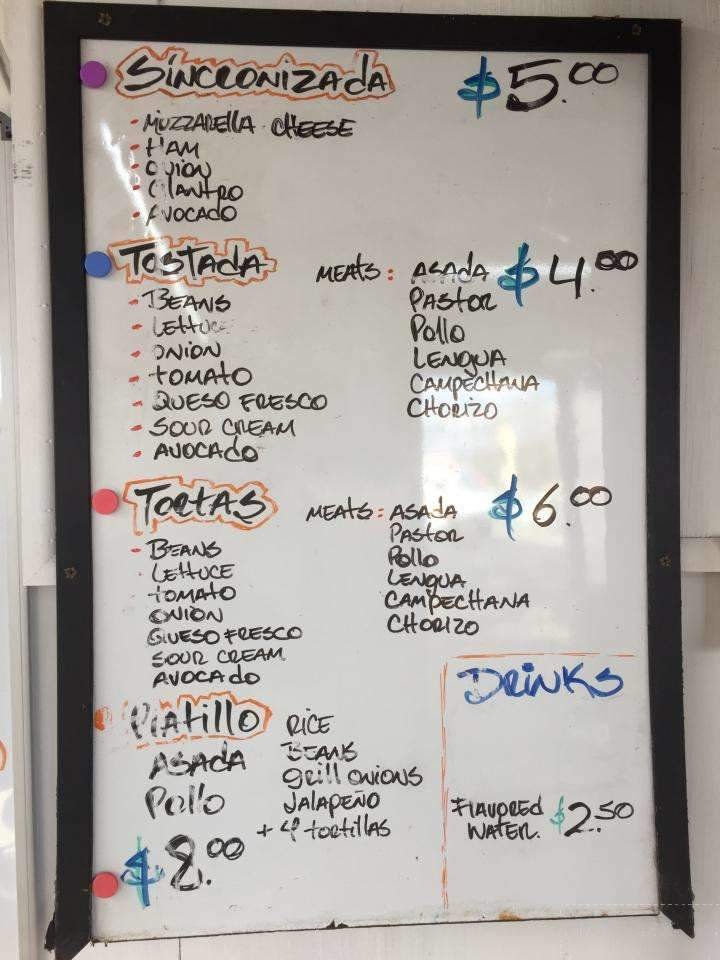 SINCRONIZADA $5.00
- MUZZARELLA CHEESE
- HAM
- ONION
- CILANTRO
- AVOCADO
TOSTADA MEATS: ASADA $4.00
- BEANS PASTOR
- LETTUCE POLLO
- ONION LENGUA
- TOMATO CAMPECHANA
- QUESO FRESCO CHORIZO
- SOUR CREAM
- AVOCADO
TORTAS MEATS: ASADA $6.00
- BEANS PASTOR
LETTUCE POLLO
TOMATO LENGUA
ONION CAMPECHANA
QUESO FRESCO CHORIZO
SOUR CREAM
AVOCADO
PLATILLO RICE
ASADA BEANS
POLLO GRILL ONIONS
JALAPEÑO
+ 4 TORTILLAS
$8.00
DRINKS
FLAVORED WATER. $2.50